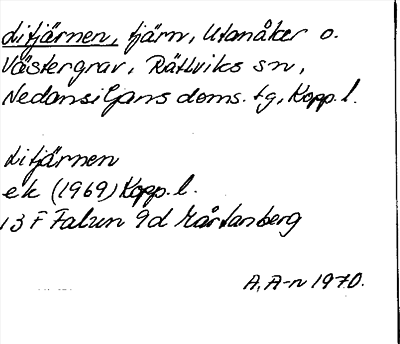 Litjärnen, tjärn, Utanåker o.
Västergrav, Rättviks sn,
Nedansiljans doms. tg, Kopp. l.
Litjärnen
ek (1969) Kopp. l.
13 F Falun 9d Mårtanberg
A. A-n 1970.